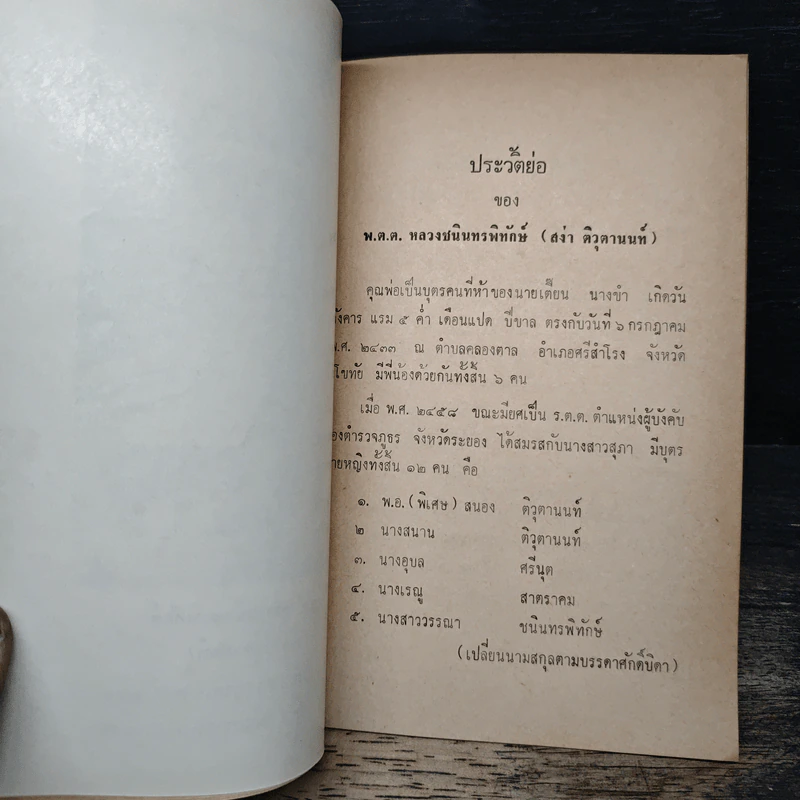 ประวัติย่อ
ของ
พ.ต.ต. หลวงชนินทรพิทักษ์ (สง่า ติวุตานนท์)
คุณพ่อเป็นบุตรคนที่ห้าของนายเตี๊ยน นางขำ เกิดวัน
อังคาร แรม ๕ ค่ำ เดือนแปด ปีขาล ตรงกับวันที่ ๖ กรกฎาคม
พ.ศ. ๒๔๓๓ ณ ตำบลคลองตาล อำเภอศรีสำโรง จังหวัด
โขทัย มีพี่น้องด้วยกันทั้งสิ้น ๖ คน
เมื่อ พ.ศ. ๒๔๕๘ ขณะมียศเป็น ร.ต.ต. ตำแหน่งผู้บังคับ
องตำรวจภูธร จังหวัดระยอง ได้สมรสกับนางสาวสุภา มีบุตร
ายหญิงทั้งสิ้น ๑๒ คน คือ
๑. พ.อ. (พิเศษ) สนอง ติวุตานนท์
๒ นางสนาน ติวุตานนท์
๓. นางอุบล ศรีนุต
๔. นางเรณู สาตราคม
๕. นางสาววรรณา ชนินทรพิทักษ์
(เปลี่ยนนามสกุลตามบรรดาศักดิ์บิดา)